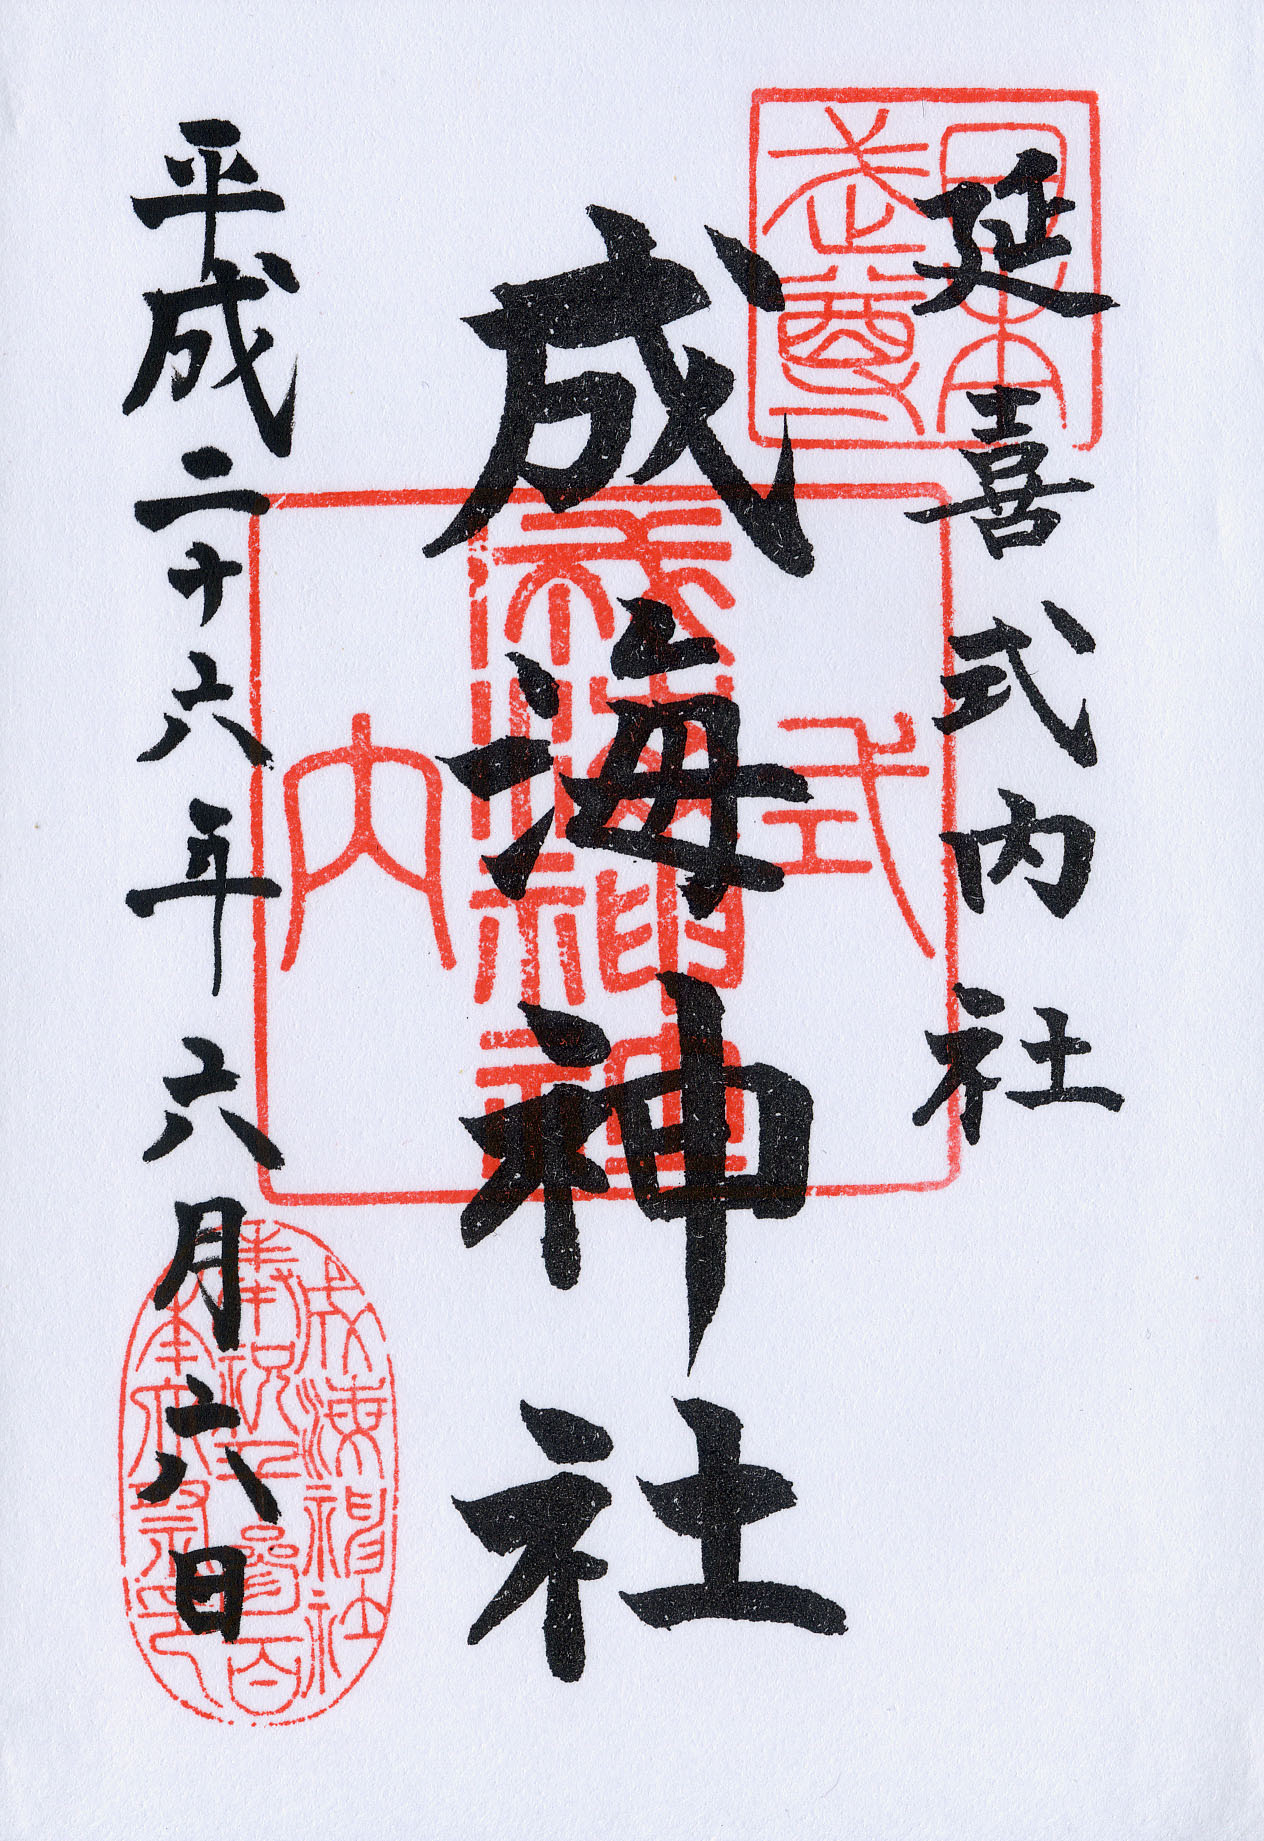 延喜式内社
日本武尊
成海神社
式内
成海神社
平成二十六年六月六日
成海神社